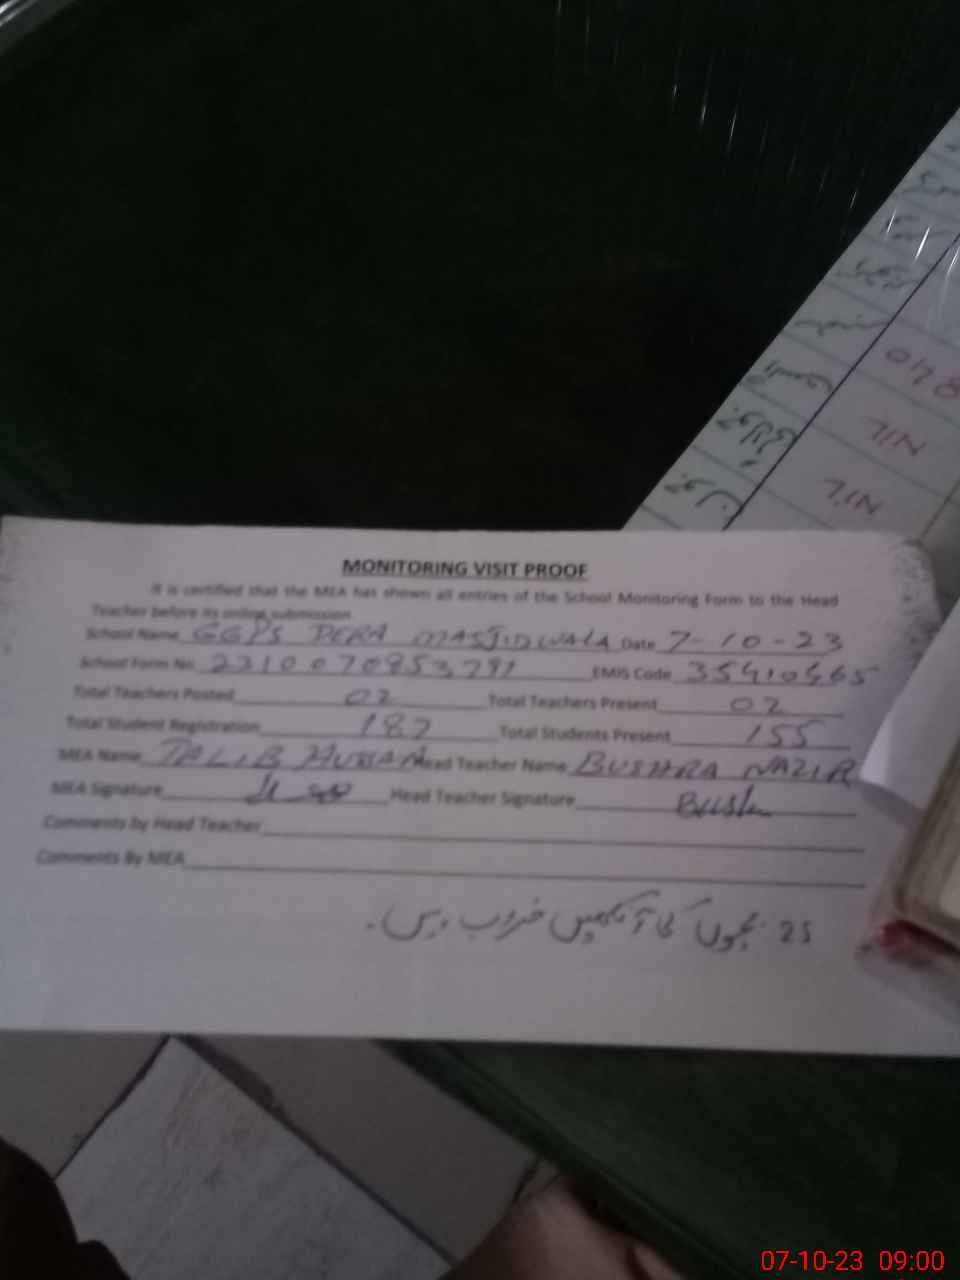 MONITORING VISIT PROOF
It is certified that the MEA has shown all entries of the School Monitoring Form to the Head
Teacher before its online submission
School Name GGPS DERA MASJID WALA Date 7-10-23
School Form No. 2310070853791 EMIS Code 35410465
Total Teachers Posted 02 Total Teachers Present 02
Total Student Registration 187 Total Students Present 155
MEA Name TALIB HUSSAN Head Teacher Name BUSHRA NAZIR
MEA Signature Head Teacher Signature
Comments by Head Teacher
Comments By MEA
25 بچوں کی آنکھیں خراب ہیں۔
NIL
NIL
07-10-23 09:00